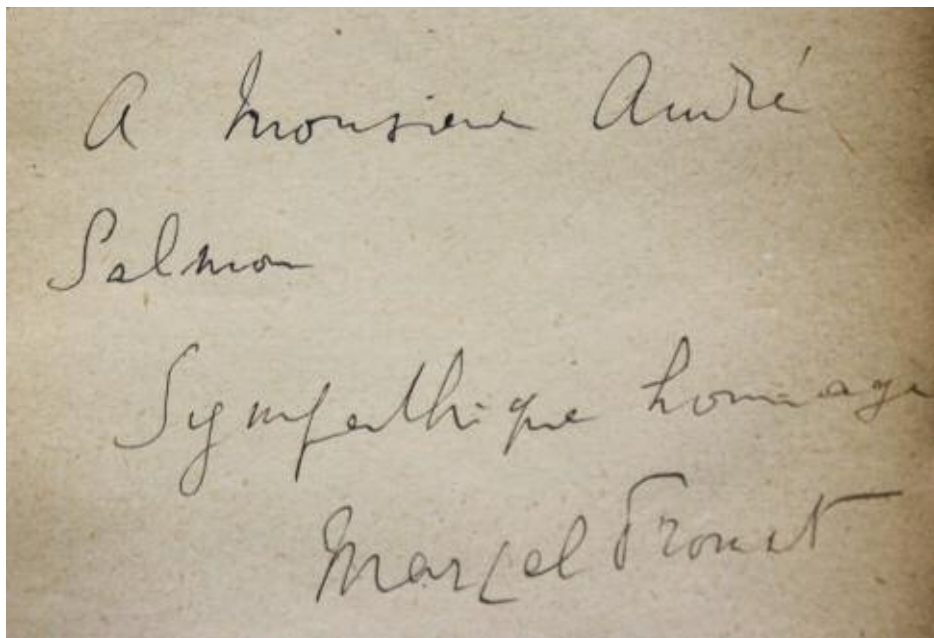 A Monsieur André
Salmon
Sympathique hommage
Marcel Proust